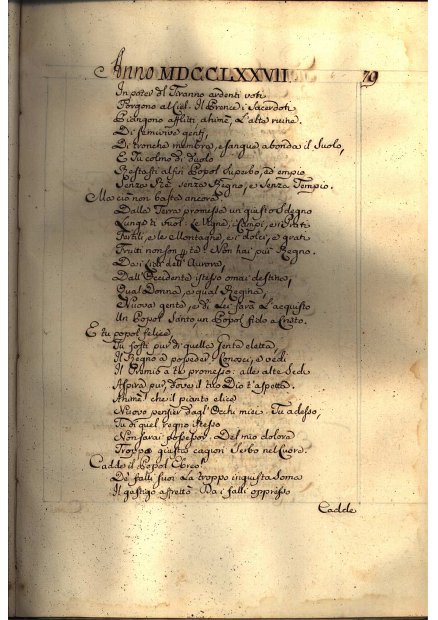 Anno MDCCLXXVII
79
In poter del Tiranno ardenti voti
Porgono al Ciel. Il Prence i Sacerdoti
Piangono afflitti ahimè, L'alta ruina.
Di semivive genti,
Di tronche membra, e sangue abonda il Suolo,
E Tu colmo di duolo
Restasti alfin Popol Superbo, ed empio
Senza Rè senza Regno, e Senza Tempio.
Ma ciò non basta ancora.
Dalla Terra promessa un giusto Sdegno
Lunge ti vuol: le Vigne, i Campi, e i Prati
Fertili, e le Montagne, e i dolci, e grati
Frutti non son p te. Non hai più Regno.
Dai Lidi dell'Aurora,
Dall'Occidente istesso omai destina,
Qual Donna, e qual Regina,
Nuova gente, e di Lei farà L'acquisto
Un Popol Santo un Popol fido a Cristo.
E tu popol felice,
Tu fosti pur di quella gente eletta,
Il Regno a posseder: Conosci, e vedi
Il Premio a te promesso: alle alte Sedi
Aspira pur, dove il tuo Dio t'aspetta.
Ahimè! che il pianto elice
Nuovo pensier dagl'Occhi miei. Tu adesso,
Tu di quel regno istesso
Non sarai possessor. Del mio dolore
Troppo giusta cagion Serbo nel Cuore.
Cadde il Popol Ebreo!
De' falli suoi La troppo ingiusta Soma
Il gastigo affrettò. Da i falli oppresso
Cadde